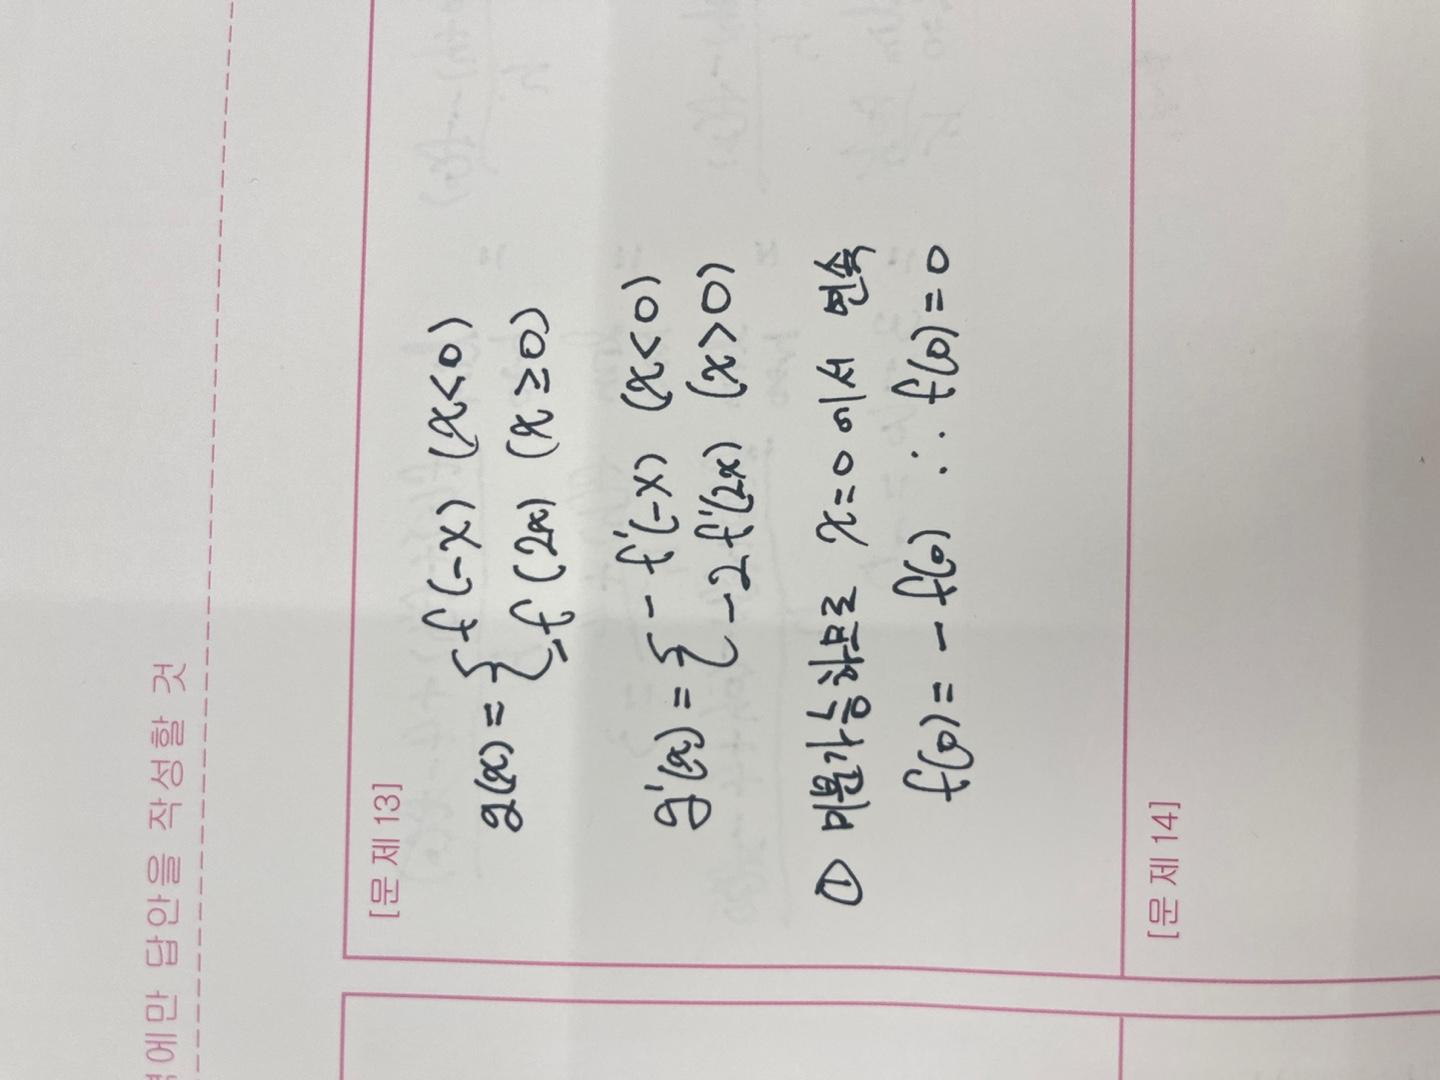 답안을 작성할 것
[문제 13]
g(x) = { f(-x) (x<0)
-f(2x) (x≥0)
g'(x) = { -f'(-x) (x<0)
-2f'(2x) (x>0)
① 미분가능하므로 x=0에서 연속
f(0) = -f(0) ∴ f(0)=0
[문제 14]